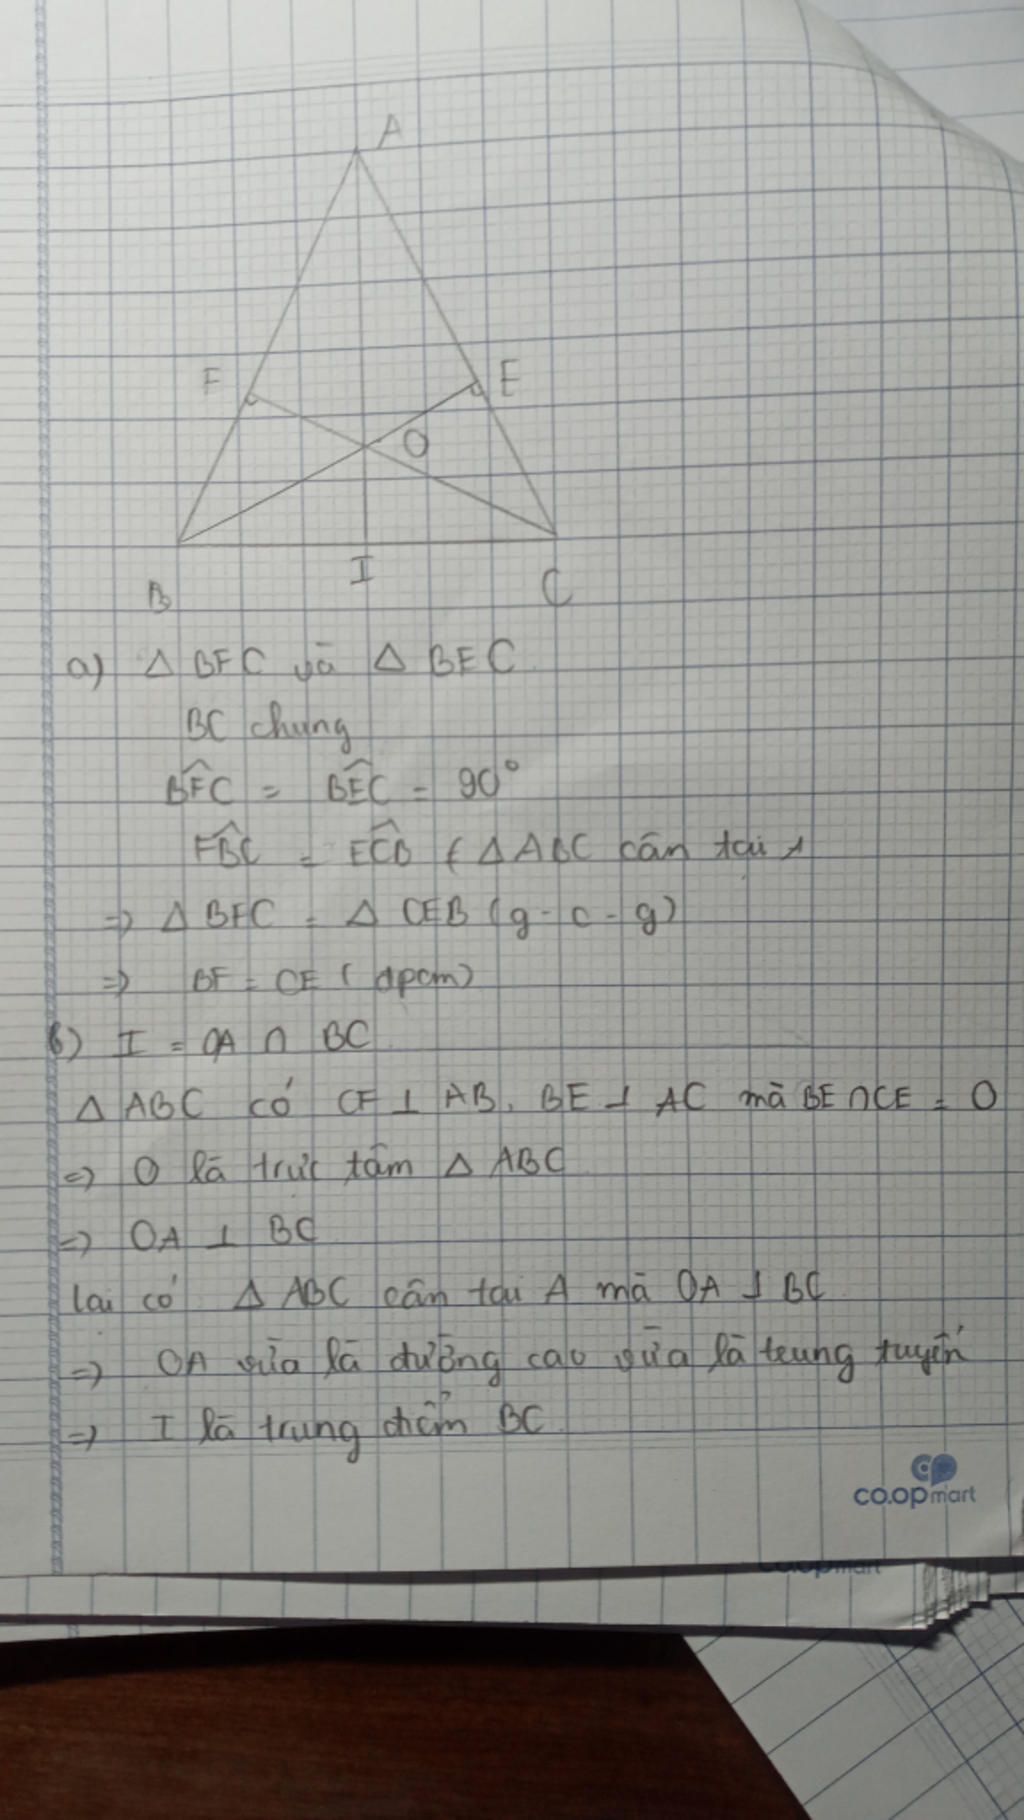 A
F
E
O
I
B
C
a) △ BFC và △ BEC
BC chung
B̂FC = BÊC = 90°
FB̂C = EĈB ( △ ABC cân tại A
=> △ BFC = △ CEB (g - c - g)
=> BF = CE ( đpcm)
b) I = OA ∩ BC
△ ABC có CF ⊥ AB, BE ⊥ AC mà BE ∩ CE = O
=> O là trực tâm △ ABC
=> OA ⊥ BC
lại có △ ABC cân tại A mà OA ⊥ BC
=> OA vừa là đường cao vừa là trung tuyến
=> I là trung điểm BC
co.opmart
co.opmart